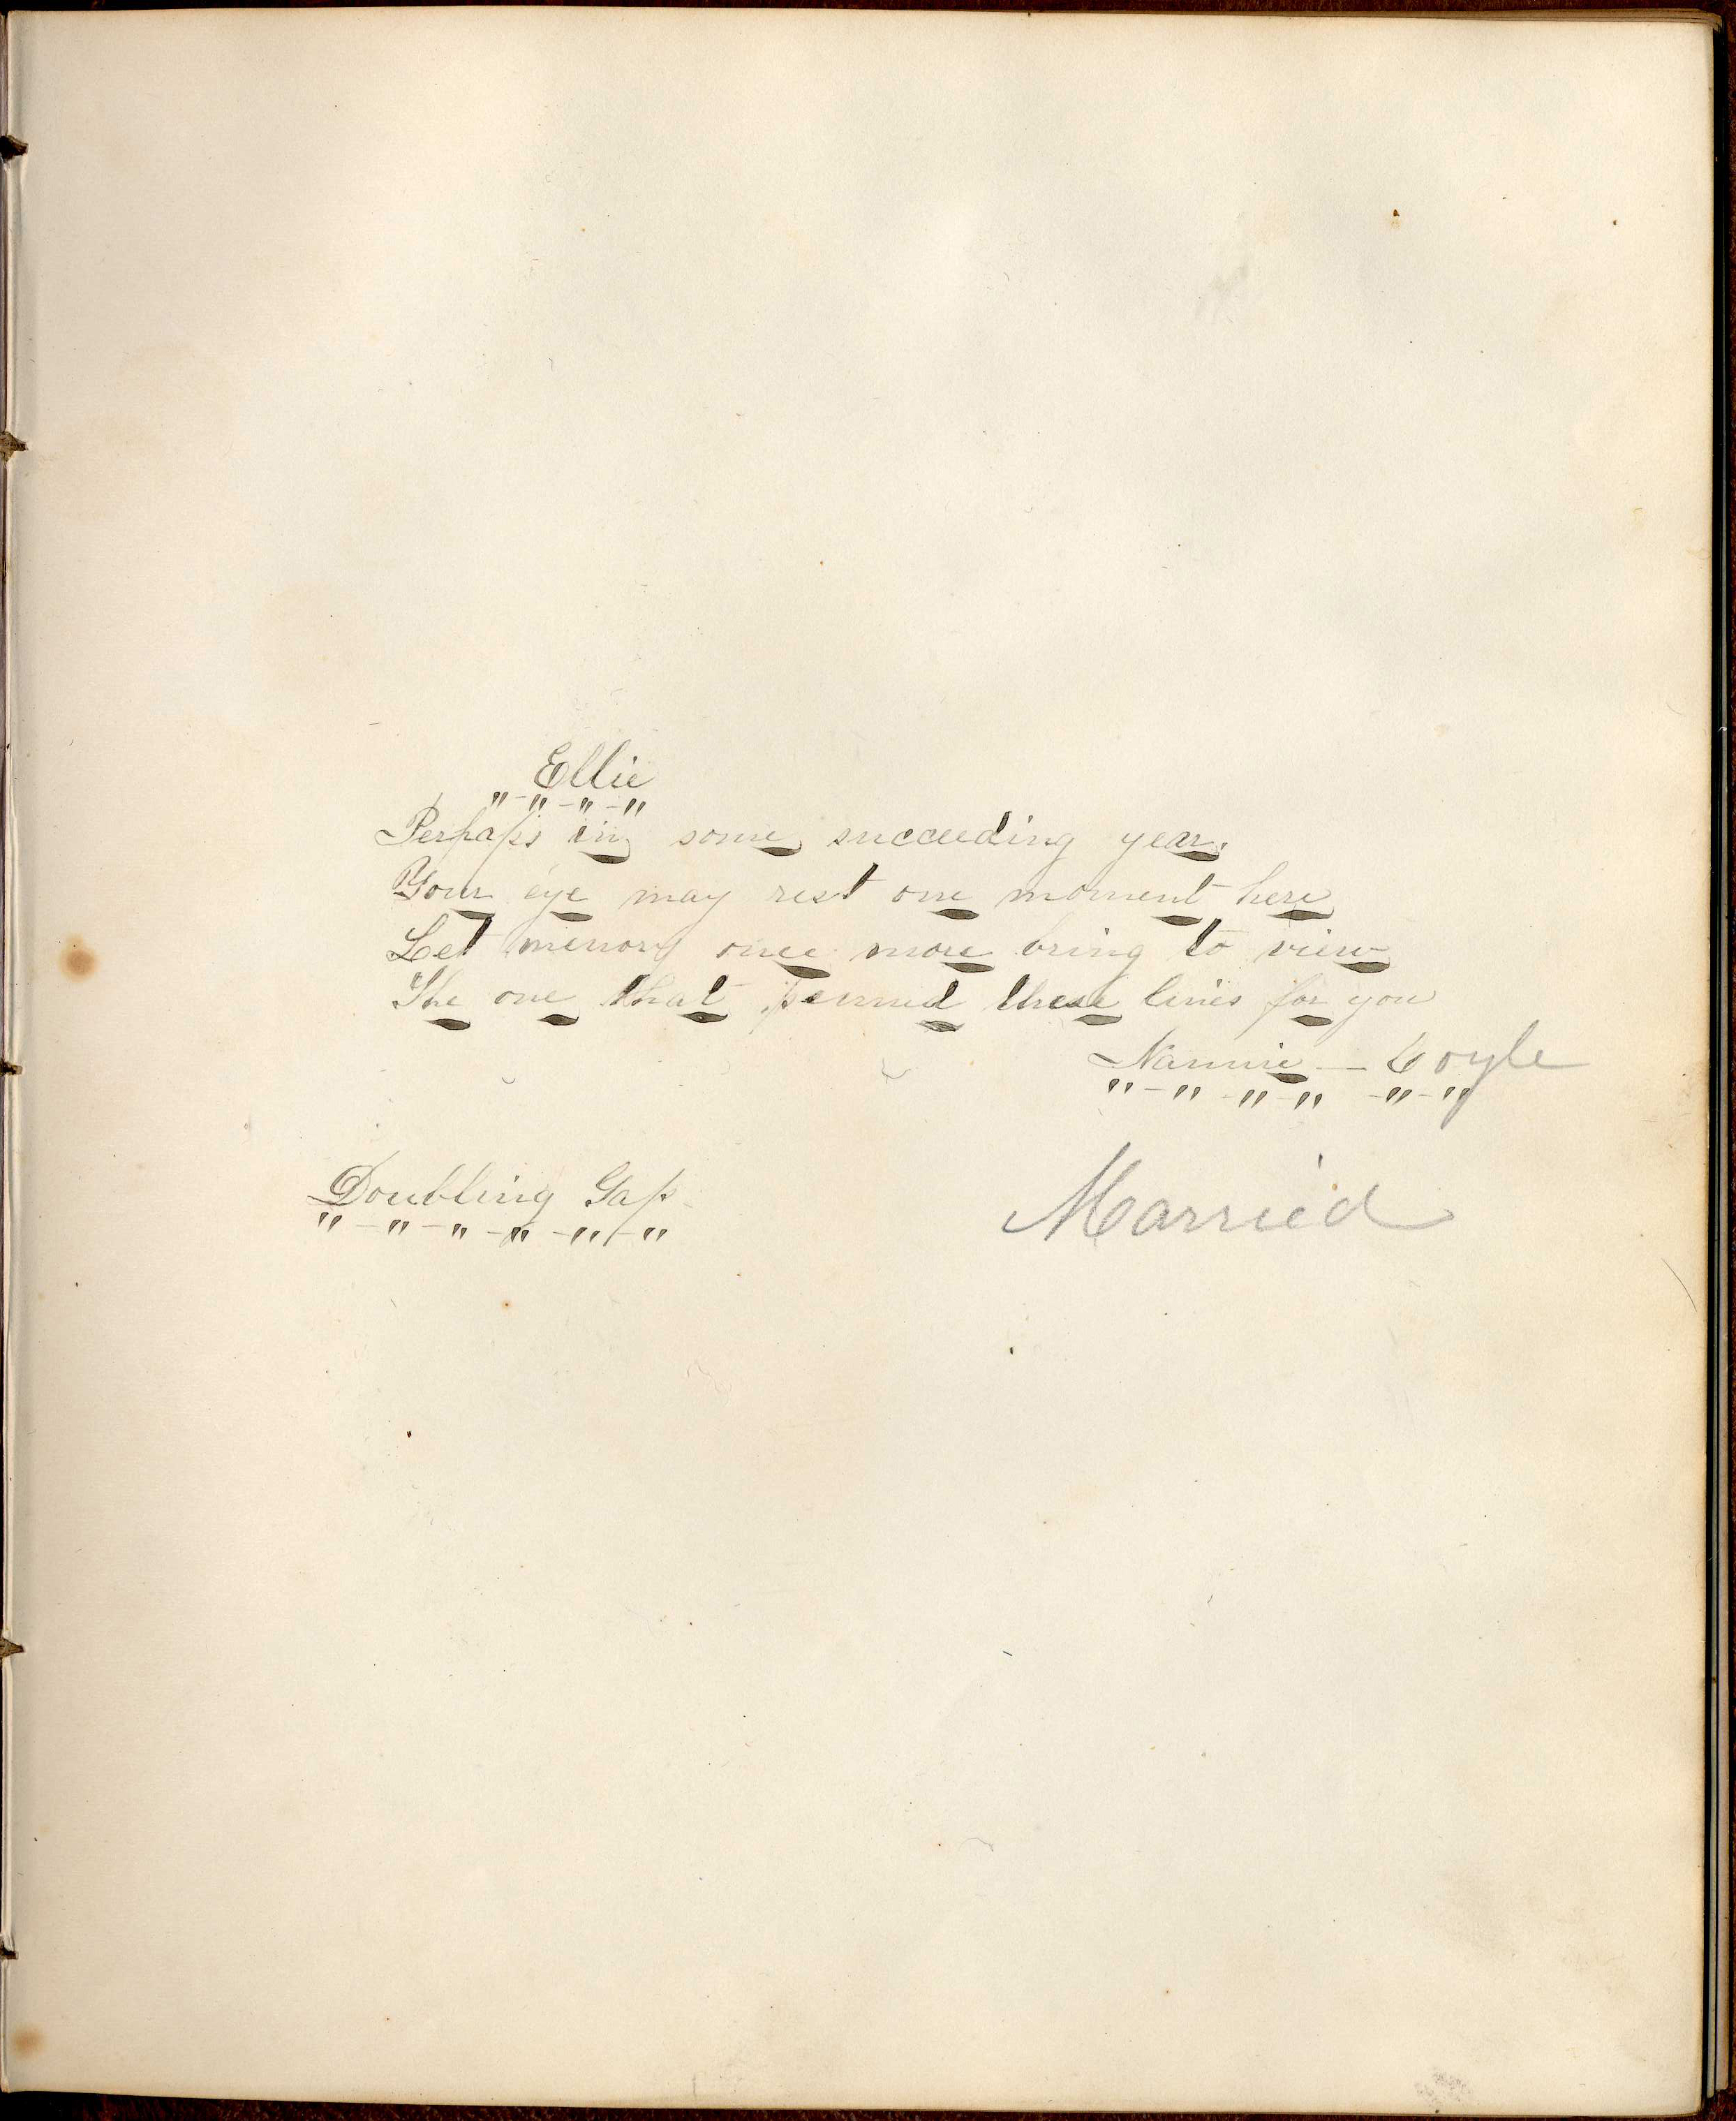 Ellie
" - " - " - "
Perhaps in some succeeding year.
Your eye may rest one moment here
Let memory once more bring to view
The one that penned these lines for you
Nannie — Coyle
" - " - " - " - " - "
Doubling Gap
" - " - " - " - " - "
Married